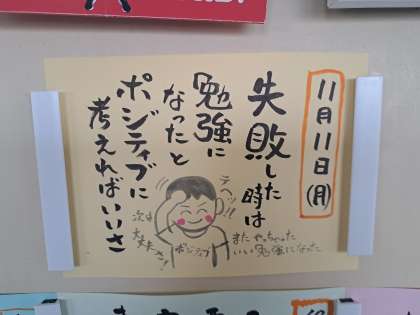 11月11日(月)
失敗した時は
「勉強に
なったと
ポジティブに
考えればいいさ
テヘッ!!
またやっちゃった
いい勉強になった
ポジティブ
次は
大丈夫さ!